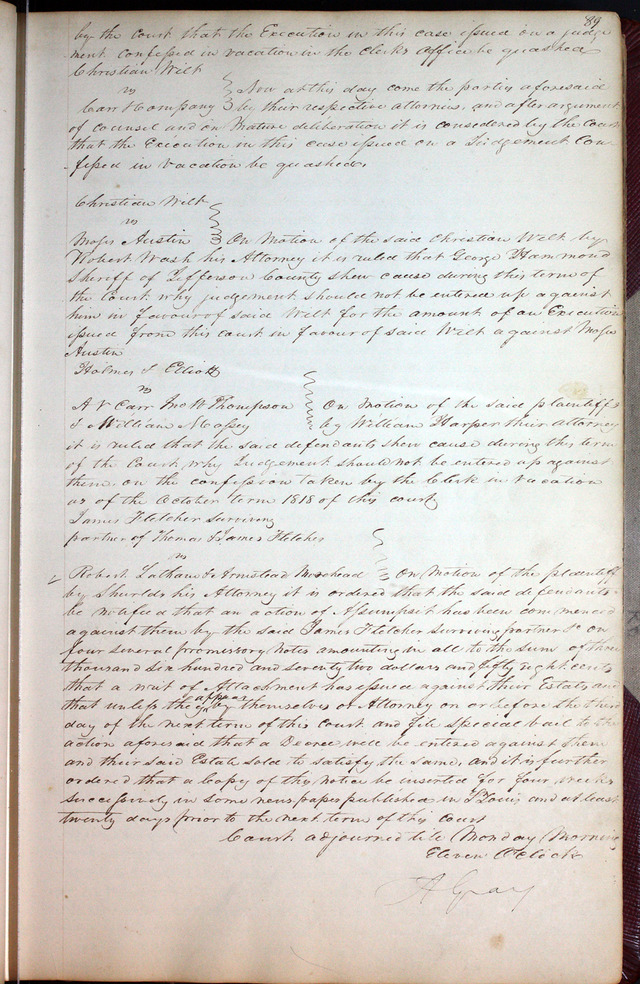 89
by the court that the Execution in this case issued on a judge
ment confessed in vacation in the Clerks office be quashed
Christian Wilt
vs
Now at this day come the parties aforesaid
Carr & Company by their respective attornies, and after argument
of Counsel and on mature deliberation it is considered by the Court
that the Execution in this case issued on a Judgement Con
fessed in vacation be quashed.
Christian Wilt
vs
Moses Austin On Motion of the said Christian Wilt by
Robert Wash his Attorney it is ruled that George Hammond
Sheriff of Jefferson County shew cause during this term of
the Court why judgement should not be entered up against
him in favour of said Wilt for the amount of an Execution
issued from this court in favour of said Wilt against Moses
Austin
Holmes & Elliott
vs
A V Carr Jno W Thompson On Motion of the said plaintiffs
& William Massey by William Harper their attorney
it is ruled that the said defendants shew cause during this term
of the Court why Judgement should not be entered up against
them on the confession taken by the Clerk in vacation
as of the October term 1818 of this court
James Fletcher Surviving
partner of Thomas & James Fletcher
vs
Robert Latham & Armstead Morehead On Motion of the plaintiff
by Shurlds his Attorney it is ordered that the said defendants
be notified that an action of Assumpsit has been commenced
against them by the said James Fletcher surviving partner &c on
four several promissory notes amounting in all to the sum of three
thousand six hundred and seventy two dollars and fifty eight cents
that a writ of Attachment has issued against their Estate and
that unless they appear by themselves or Attorney on or before the third
day of the next term of this court and file special bail to the
action aforesaid that a Decree will be entered against them
and their said Estate sold to satisfy the same, and it is further
ordered that a Copy of this notice be inserted for four weeks
successively in some newspaper published in St Louis and at least
twenty days prior to the next term of this court
Court adjourned till Monday Morning
Eleven OClock
A Gray